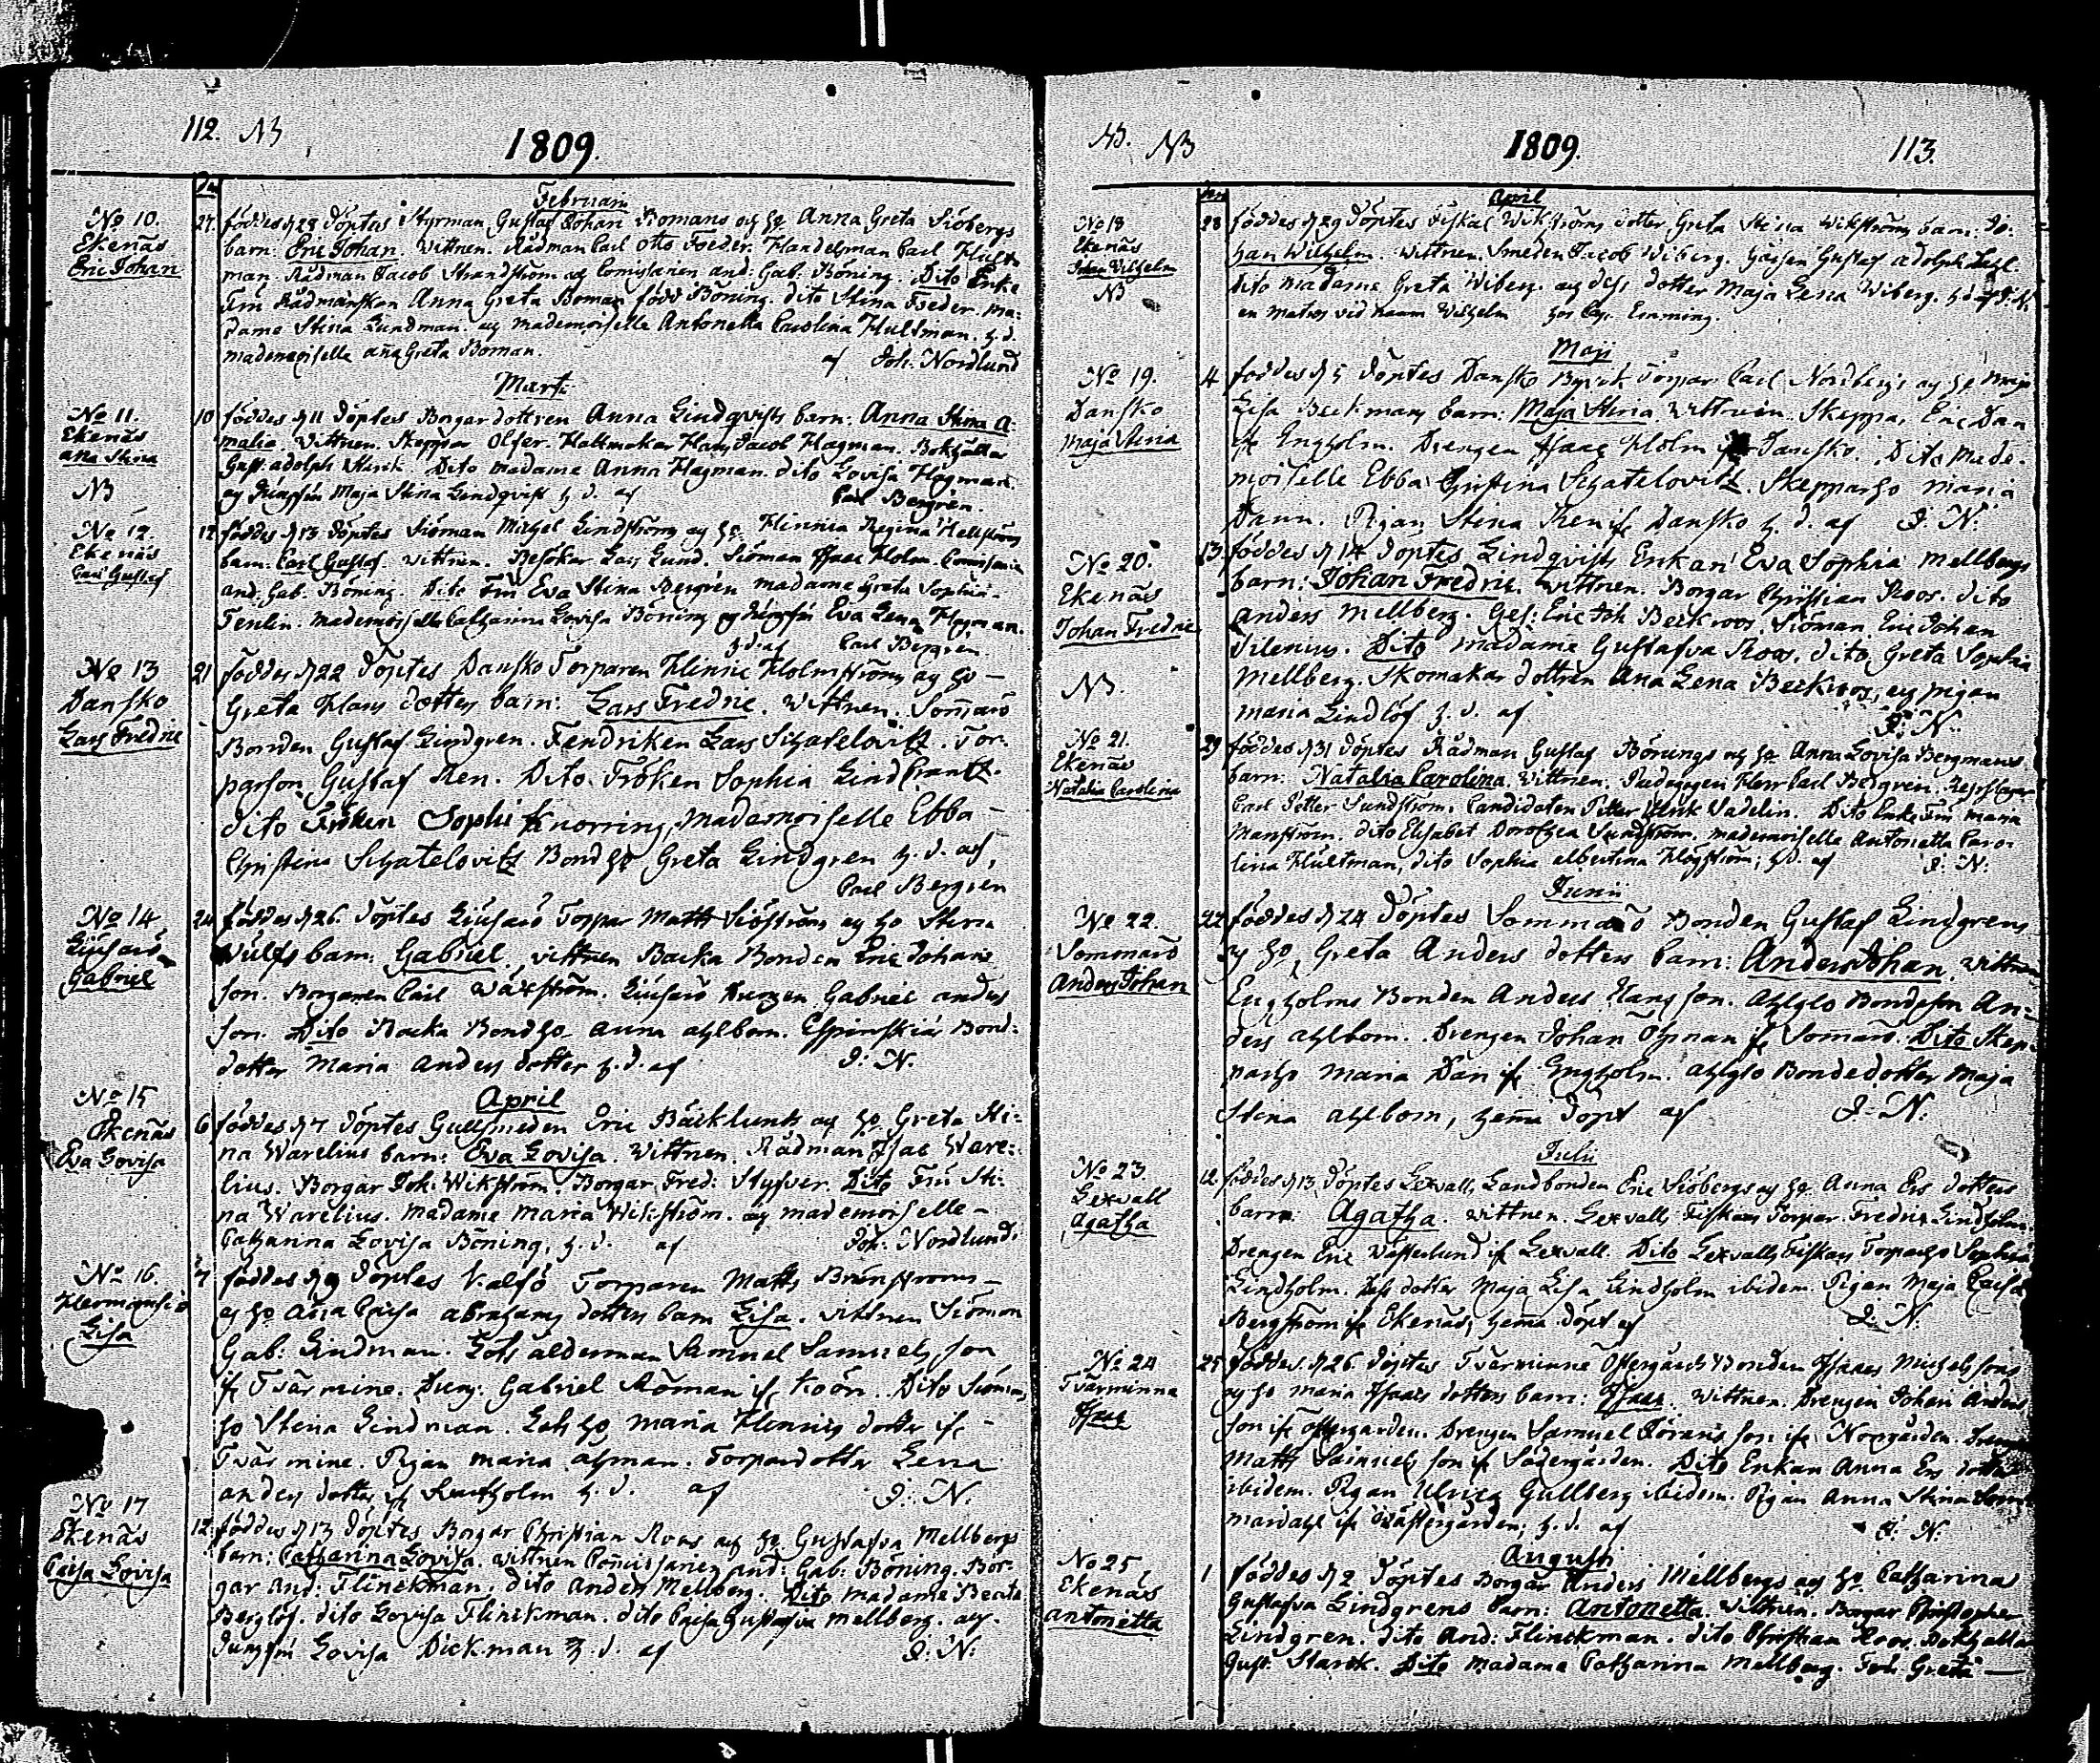 112. NB
1809.
Februarii
No 10. Ekenäs Eric Johan
27. föddes d 28 döptes Styrman Gustaf Johan Bomans og ho Anna Greta Siöbergs
barn: Eric Johan. Wittnen. Rådman Carl Otto Foeder. Handelsman Carl Hult
man. Rådman Jacob Strandström og Comissarien and: Gab: Böning. Dito Enke
Fru Rådmanskan Anna Greta Boman född Böning. dito Stina Foeder. Ma:
dame Stina Lundman. og mademoiselle Antonetta Carolina Hultman. h. d.
mademoiselle Aña Greta Boman. af Joh. Nordlund
Marti
No 11. Ekenäs Ana Stina NB
10 föddes d 11 döptes Borgar dottren Anna Lindqvists barn: Anna Stina A:
malia. Wittnen. Skeppar Olser. Hattmakar Hans Jacob Hagman. Bokhållar
Gust: adolph Stark. Dito madame Anna Hagman. dito Lovisa Hagman.
og Jungfru Maja Stina Lindqvist h. d. af Carl Bergren.
No 12. Ekenäs Carl Gustaf
12 föddes d 13 döptes Siöman Michel Lindström og ho Hinnica Regina Hellström
barn: Carl Gustaf. Wittnen. Besökar Lars Lund. Siöman Isaac Holm. Comissarien
and: Gab: Böning. Dito Fru Eva Stina Bergren madame Greta Sophia
Tenlin. mademoiselle Catharina Lovisa Böning og Jungfru Eva Lena Hagman.
h. d. af Carl Bergren.
No 13 Dansko Lars Fredric
21 föddes d 22 döptes Dansko Torparen Hinric Holmströms og ho
Greta Hans dotters barn: Lars Fredric. Wittnen. Somarö
Bonden Gustaf Lindgren. Fendriken Lars Schatelovitz. Tor:
parson Gustaf Ren. Dito Fröken Sophia Lindcrantz.
dito Fröken Sophi Knorring, Mademoiselle Ebba
Christina Schatelovitz Bond ho Greta Lindgren h. d. af,
Carl Bergren
No 14 Gabriel
24 föddes d 26 döptes Torpar Matts Siöströms og ho Stina
Wulfs barn: Gabriel. Vittnen Backa Bonden Eric Johans
son. Borgaren Carl Wäxström. Drengen Gabriel anders
son. Dito Backa Bond ho anna ahlbom. Espinskiär Bond:
dotter Maria anders dotter h. d. af J: N.
April
No 15 Ekenäs Eva Lovisa
6 föddes d 7 döptes Gullsmeden Eric Bäcklunds og ho Greta Sti:
na Warelius barn: Eva Lovisa. Wittnen. Rådman Isac Ware:
lius. Borgar Joh: Wikström. Borgar Fred: Styfver. Dito Fru Sti:
na Warelius. Madame Maria Wikström. og mademoiselle
Catharina Lovisa Böning. h. d. af Joh: Nordlund.
No 16. Hermansö Lisa
7 föddes d 9 döptes Valsö Torparen Matts Brunströms
og ho Aña Caisa abrahams dotters barn Lisa. Vittnen Siöman
Gab: Lindman. Lots alderman Samuel Samuels son
if Tvärmine. Dreng: Gabriel Råman if Koön. Dito Siömans
ho Stina Lindman. Lots ho maria Hinrics dotter if
Tvärmine. Pigan maria åhman. Torpardotter Lena
anders dotter if holm h. d. af J: N.
No 17 Ekenäs Caisa Lovisa
12. föddes d 13 döptes Borgar Christian Roos og ho Gustafva Mellbergs
barn: Catharina Lovisa. Wittnen Comissarien and: Gab: Böning. Bor:
gar And: Flinckman. dito Anders Mellberg. Dito madame Beata
Berglöf. dito Lovisa Flinckman. dito Caisa Gustafva Mellberg. og
Jungfru Lovisa Dickman h. d. af J: N:
NB
1809.
113.
April
No 18 Ekenäs Johan Vilhelm NB
28 föddes d 29 döptes Fiskal Wikströms dotter Greta Stina Wikströms barn: Jo:
han Wilhelm. Wittnen. Smeden Jacob Wiberg. Gustaf adolph
Dito madame Greta Wiberg. og dess dotter Maja Lena Wiberg. h d af J. N.
en matros vid namn Wilhelm
Maji
No 19. Dansko Maja Stina
4 föddes d 5 döptes Dansko Torpar Carl Nordbergs og ho Maja
Lisa Beckmans barn: Maja Stina. Wittnen. Skeppar Eric Dan
if Engholm. Drengen Isaac Holm if Dansko. Dito Made:
moiselle Ebba Christina Schatelovitz. Skeppar ho Maria
Dann. Pigan Stina Ren if Dansko h. d. af J. N.
No 20. Ekenäs Johan Fredric NB.
13. föddes d 14 döptes Lindqvists Enkan Eva Sophia Mellbergs
barn: Johan Fredric. Wittnen. Borgar Christian Roos. dito
Anders Mellberg. Ges: Eric Joh Beckroos. Siöman Eric Johan
Silenius. Dito madame Gustafva Roos. dito Greta Sophia
Mellberg. Skomakar dottren Ana Lena Beckroos, og pigan
maria Lindlöf h. d. af J: N.
No 21. Ekenäs Natalia Carolina
29 föddes d 31 döptes Rådman Gustaf Bönings og ho Anna Lovisa Bergmans
barn: Natalia Carolina. Wittnen. Pedagogen Herr Carl Bergren. Repslagar
Carl Petter Sundström. Candidaten Petter Ulrik Sadelin. Dito Enke Fru maria
Manström. dito Elisabet Dorothea Sundström. mademoiselle Antonetta Caro:
lina Hultman, dito Sophia albertina Högström; h. d. af J: N:
Junii
No 22. Sommarö Anders Johan
22 föddes d 24 döptes Sommarö Bonden Gustaf Lindgrens
og ho Greta Anders dotters barn: Anders Johan. Wittnen
Engholms Bonden Anders Hans son. Bondeson An:
ders ahlbom. Drengen Johan Öhman if Somarö. Dito Skep:
par ho Maria Dan if Engholm. Bondedotter Maja
Stina ahlbom, hema döpt af J: N:
Julii
No 23. Lexvall Agatha
12 föddes d 13 döptes Lexvalls Landbonden Eric Siöbergs og ho Anna Ers dotters
barn: Agatha. Wittnen. Lexvalls Fiskars Torpar Fredric Lindholm.
Drengen Eric Västerlund if Lexvall. Dito Lexvalls Fiskars Torpar ho Sophia
Lindholm. Dess dotter Maja Lisa Lindholm ibidem. Pigan Maja Caisa
Bergström if Ekenäs, hema döpt af J: N:
No 24 Tvärminna Isaac
25 föddes. d 26 döptes Tvärminne Östergårds Bonden Isaacs Michels sons
og ho maria Isaacs dotters barn: Isaac. Wittnen. Drengen Johan Anders
son if Östergården. Drengen Samuel Görans son if Norrgården. Drengen
Matts Samuels son if Södergården. Dito Enkan Anna Ers dotter
ibidem. Pigan Ulrica Gullberg ibidem. Pigan Anna Stina
if Västergården; h. d. af J: N:
Augusti
No 25 Ekenäs Antonetta
1 föddes d 2 döptes Borgar Anders Mellbergs og ho Catharina
Gustafva Lindgrens barn: Antonetta. Wittnen. Borgar Christopher
Lindgren. dito And: Flinckman. dito Christian Roos. Bokhållar
Gust: Starck. Dito madame Catharina Mellberg. Fru Greta